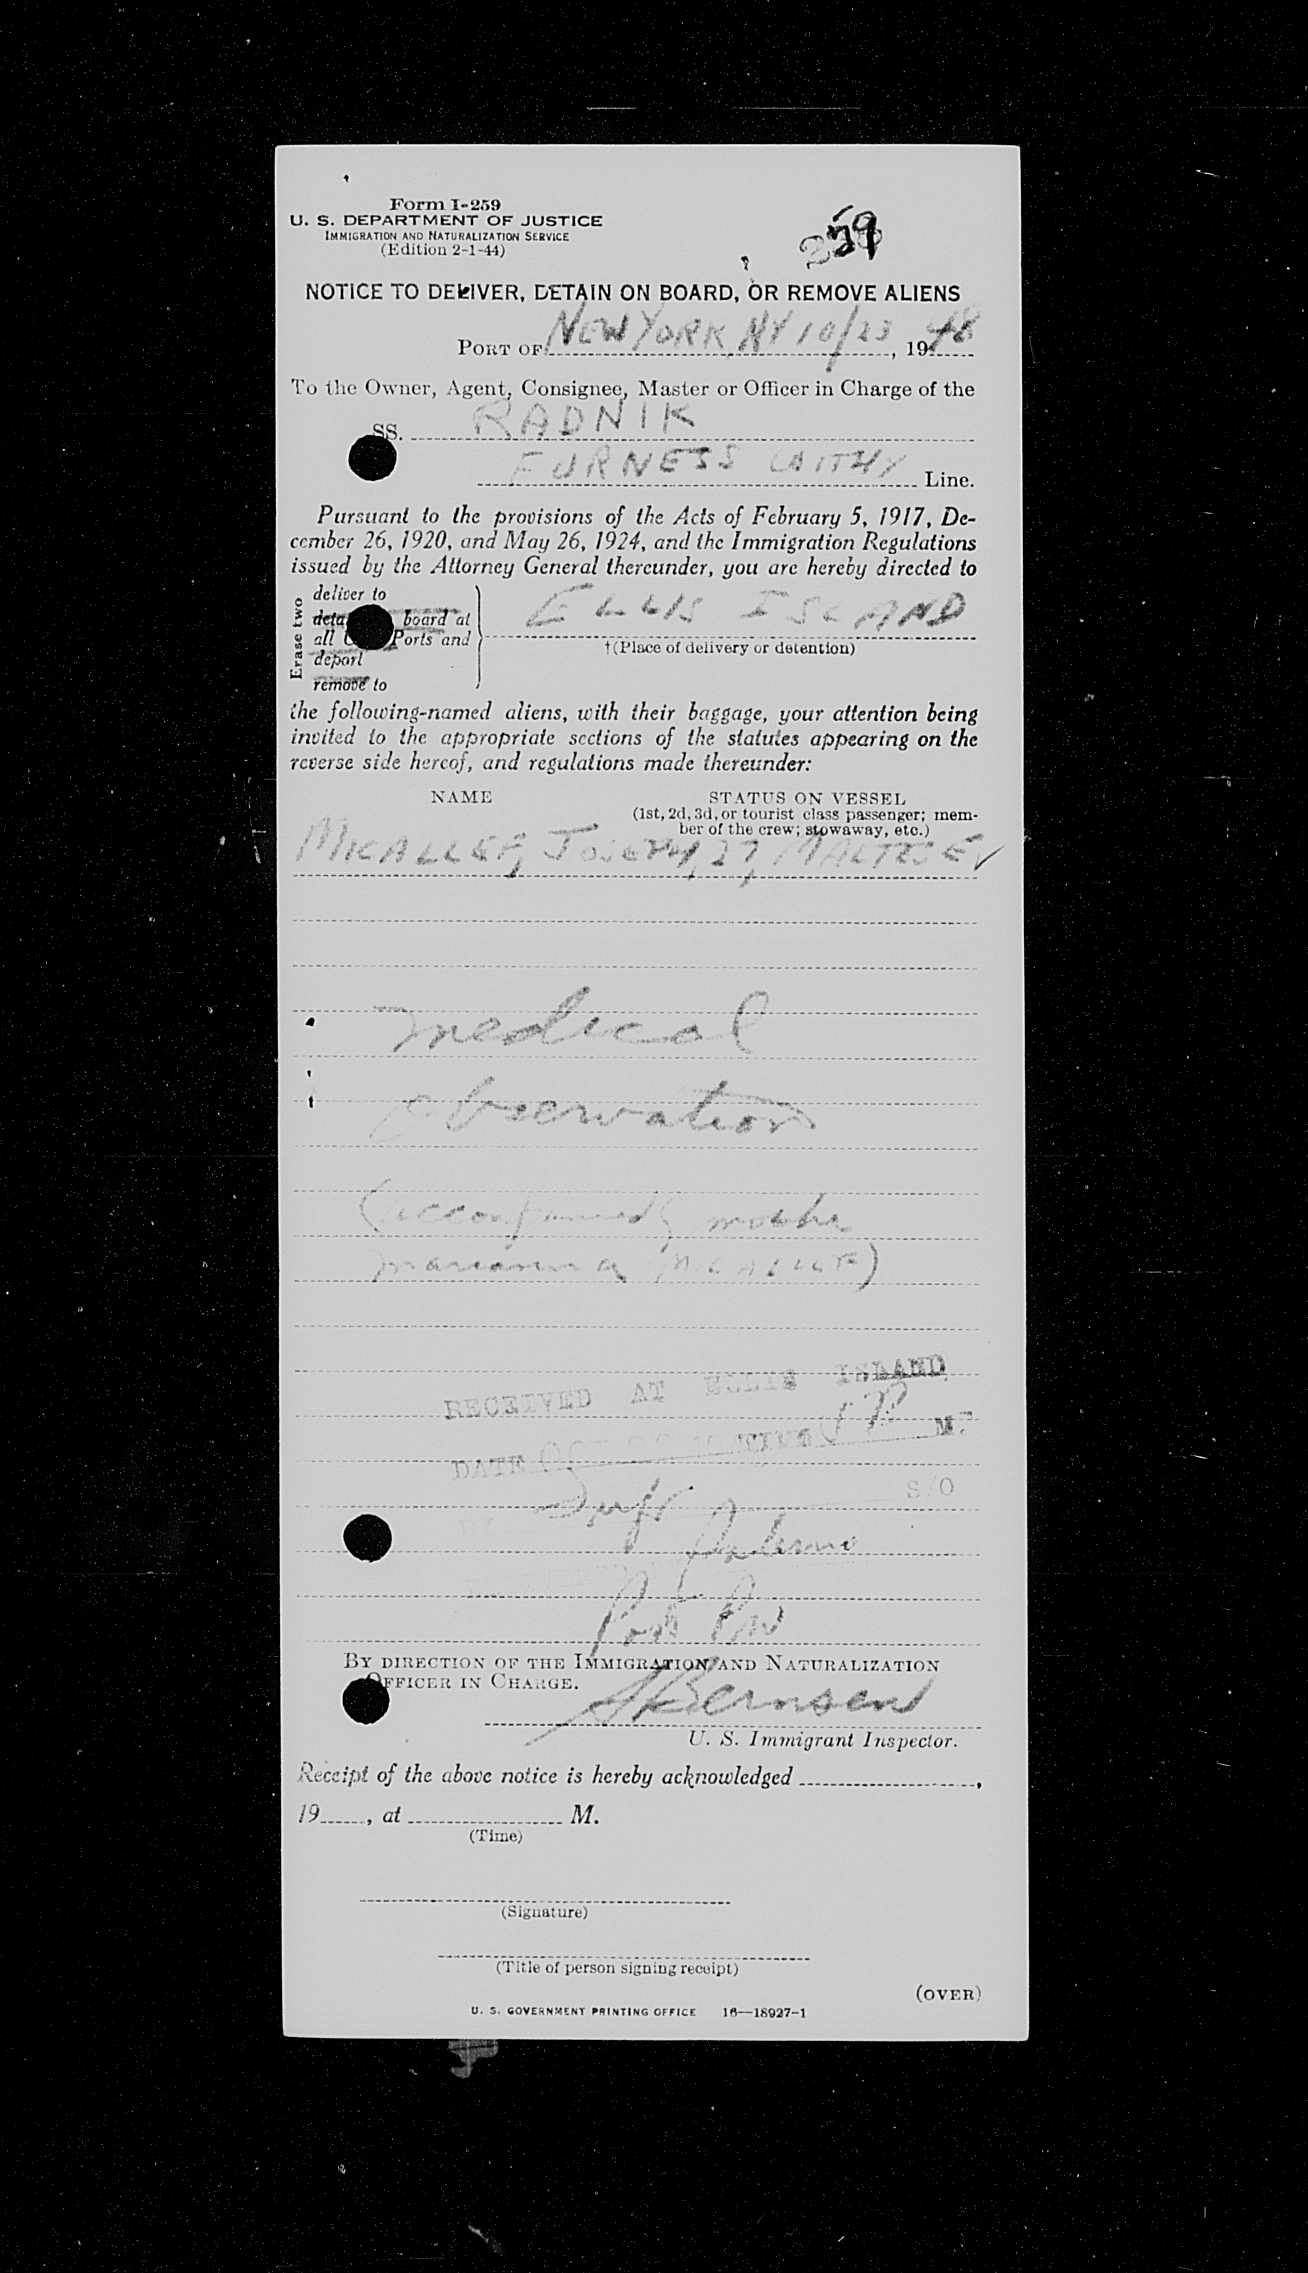 Form I-259
U. S. DEPARTMENT OF JUSTICE
IMMIGRATION AND NATURALIZATION SERVICE
(Edition 2-1-44)
59
NOTICE TO DELIVER, DETAIN ON BOARD, OR REMOVE ALIENS
PORT OF NEW YORK, NY 10/23, 1948
To the Owner, Agent, Consignee, Master or Officer in Charge of the
SS. RADNIK
FURNESS WITHY Line.
Pursuant to the provisions of the Acts of February 5, 1917, De-
cember 26, 1920, and May 26, 1924, and the Immigration Regulations
issued by the Attorney General thereunder, you are hereby directed to
Erase two
deliver to
board at
all Ports and
deport
remove to
ELLIS ISLAND
†(Place of delivery or detention)
the following-named aliens, with their baggage, your attention being
invited to the appropriate sections of the statutes appearing on the
reverse side hereof, and regulations made thereunder:
NAME STATUS ON VESSEL
(1st, 2d, 3d, or tourist class passenger; mem-
ber of the crew; stowaway, etc.)
MICALLEF, JOSEPH, 27, MALTESE ✓
medical
observation
(accompanied mother
marianna MICALLEF)
RECEIVED AT ELLIS ISLAND
DATE OCT TIME M.
S/O
Palermo
BY DIRECTION OF THE IMMIGRATION AND NATURALIZATION
OFFICER IN CHARGE.
Bernsen
U. S. Immigrant Inspector.
Receipt of the above notice is hereby acknowledged ,
19 , at M.
(Time)
(Signature)
(Title of person signing receipt)
(OVER)
U. S. GOVERNMENT PRINTING OFFICE 16—18927-1